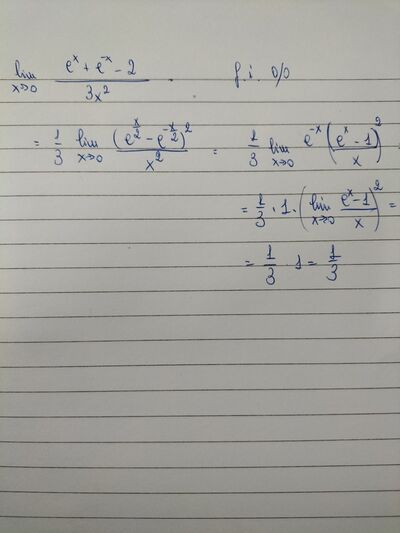 lim x→0 (e^x + e^-x - 2)/(3x^2) . f.i. 0/0
= 1/3 lim x→0 (e^(x/2) - e^(-x/2))^2/x^2 = 1/3 lim x→0 e^-x ((e^x - 1)/x)^2
= 1/3 . 1 . (lim x→0 (e^x - 1)/x)^2 =
= 1/3 1 = 1/3